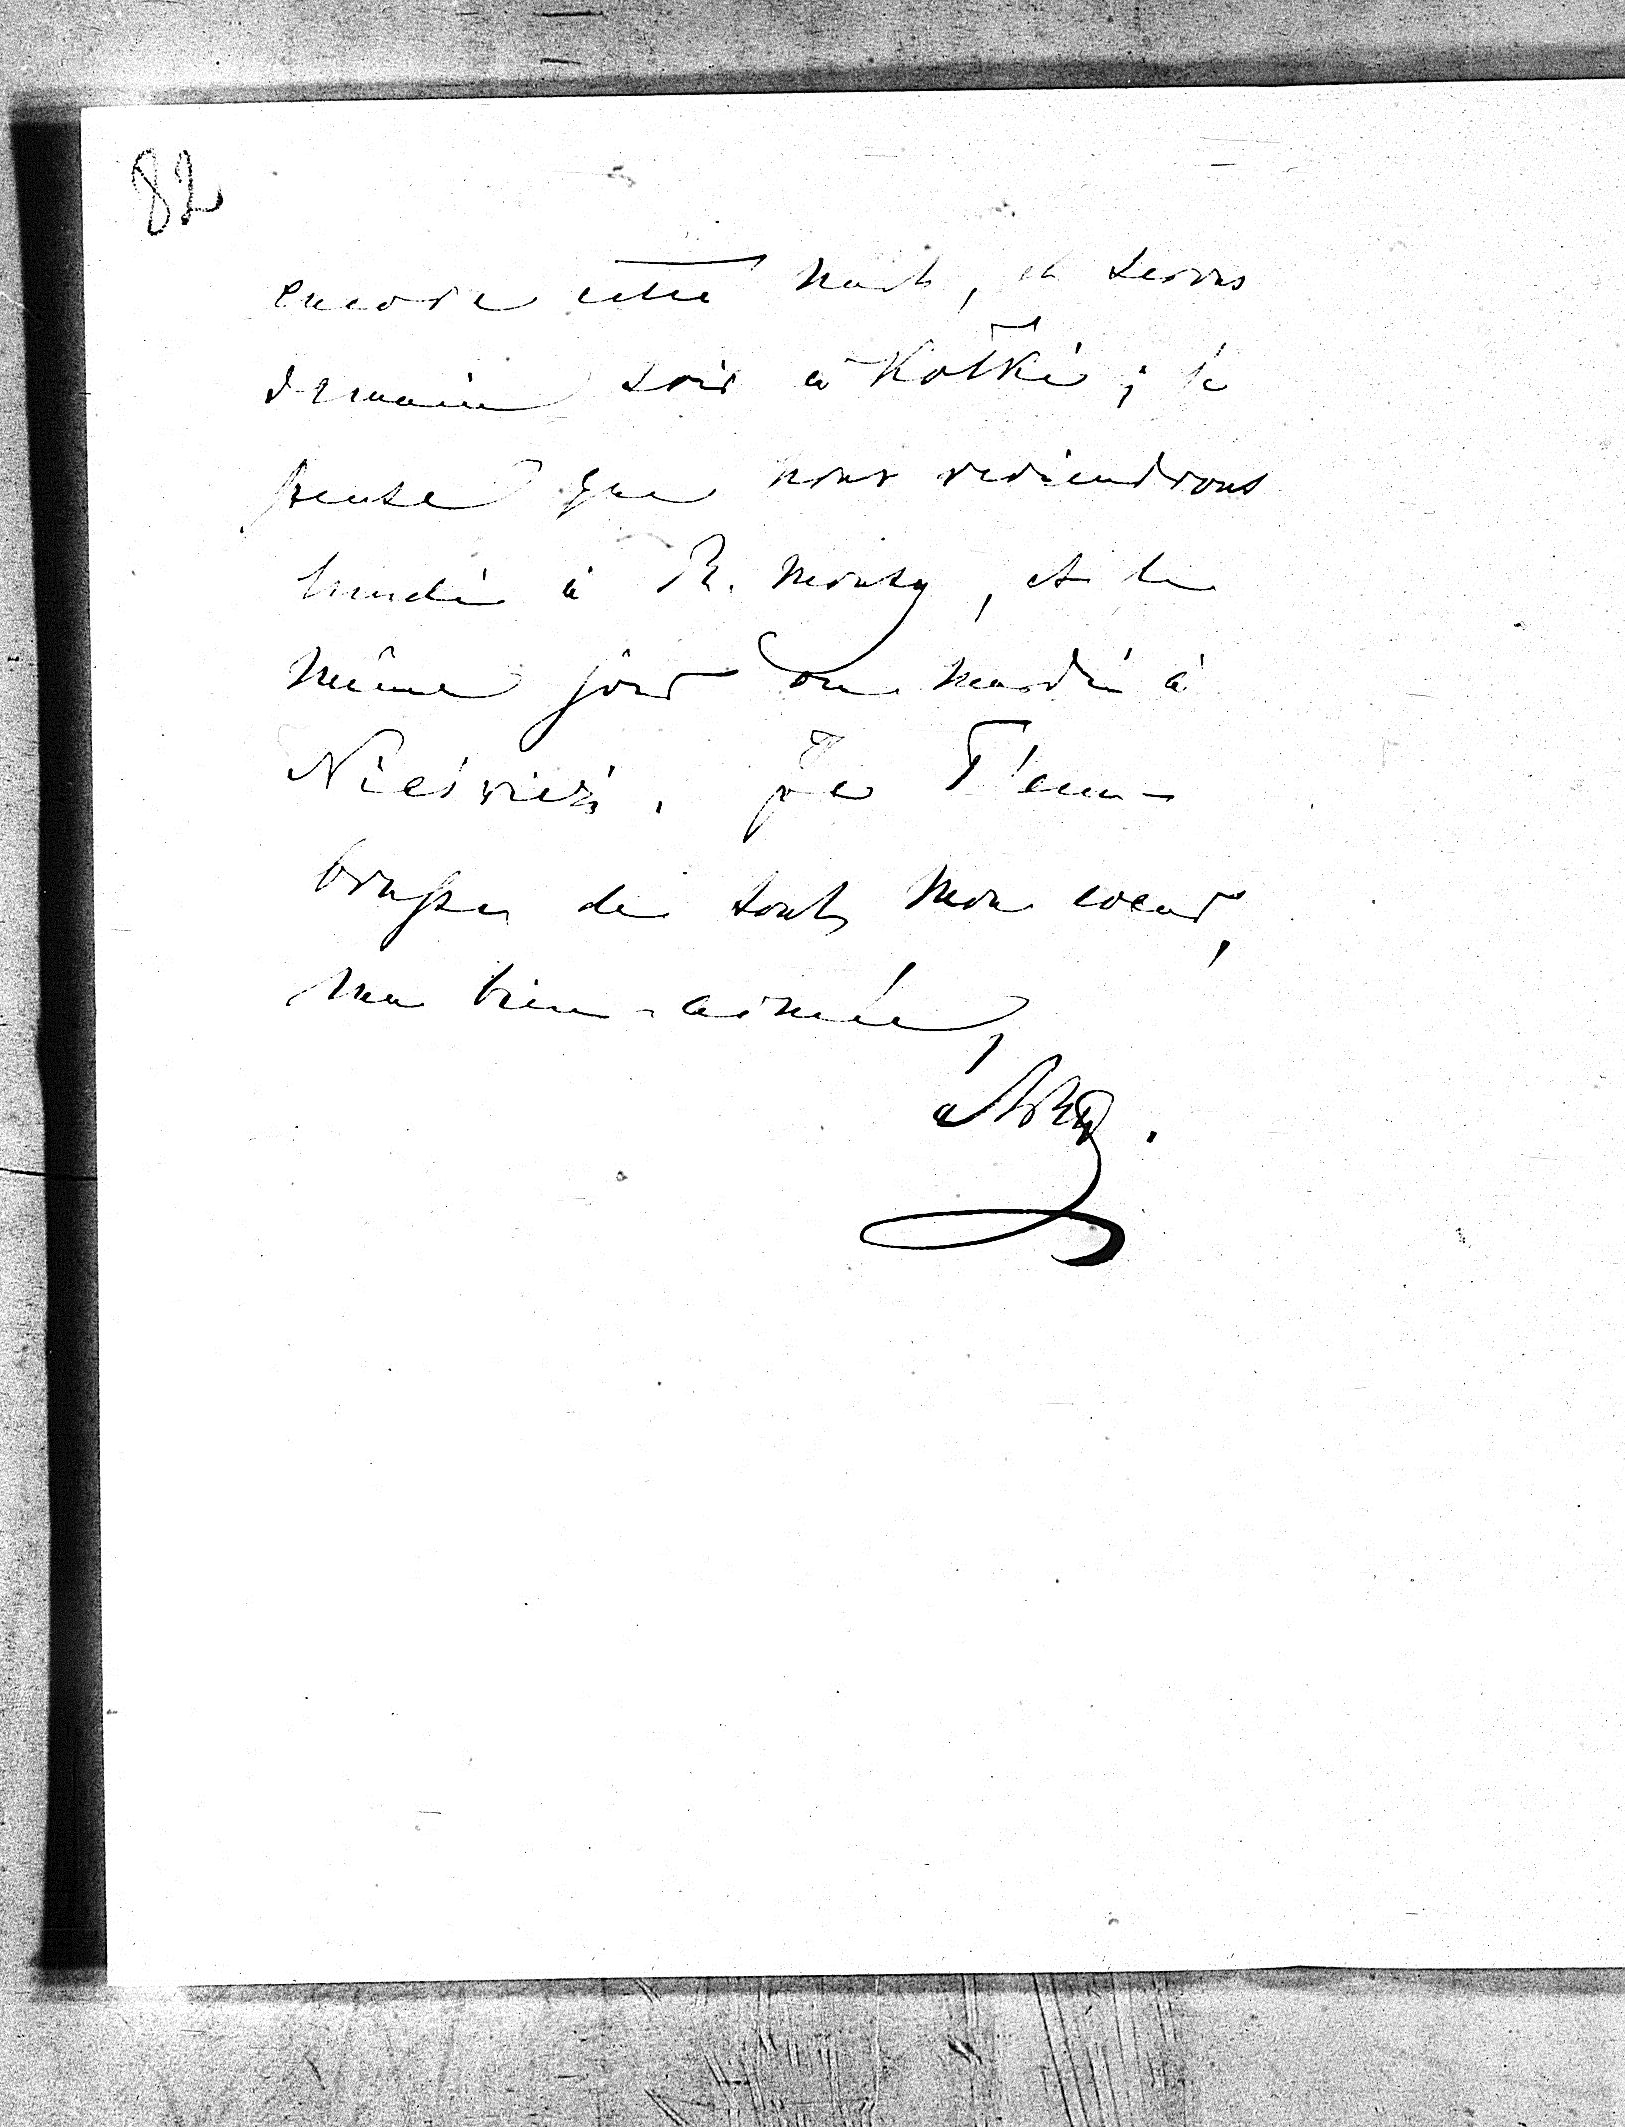 82
encore cette nuit, et serons
demain soir à Kotki ; je
pense que nous reviendrons
lundi à R. Monty, et le
même jour ou mardi à
Nieśwież. Je T'em-
brasse de tout mon coeur,
ma bien-aimée,